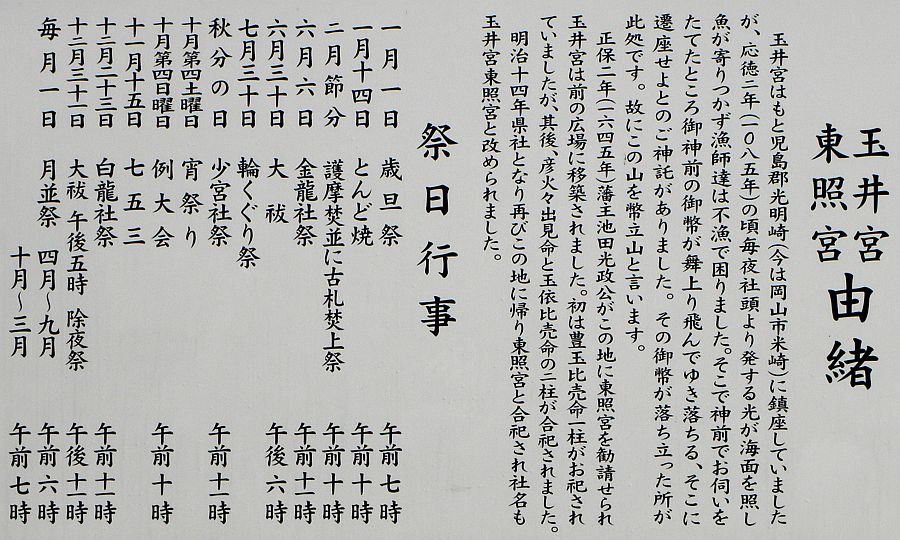 玉井宮
東照宮 由緒
玉井宮はもと児島郡光明崎(今は岡山市米崎)に鎮座していました
が、応徳二年(一〇八五年)の頃毎夜社頭より発する光が海面を照し
魚が寄りつかず漁師達は不漁で困りました。そこで神前でお伺いを
たてたところ御神前の御幣が舞上り飛んでゆき落ちる、そこに
遷座せよとのご神託がありました。その御幣が落ち立った所が
此処です。故にこの山を幣立山と言います。
正保二年(一六四五年)藩主池田光政公がこの地に東照宮を勧請せられ
玉井宮は前の広場に移築されました。初は豊玉比売命一柱がお祀され
ていましたが、其後、彦火々出見命と玉依比売命の二柱が合祀されました。
明治十四年県社となり再びこの地に帰り東照宮と合祀され社名も
玉井宮東照宮と改められました。
祭日行事
一月一日 歳旦祭 午前七時
一月十四日 とんど焼 午前十時
二月節分 護摩焚並に古札焚上祭 午前十時
六月六日 金龍社祭 午前十一時
六月三十日 大祓 午後六時
七月三十日 輪くぐり祭
秋分の日 少宮社祭 午前十一時
十月第四土曜日 宵祭り
十月第四日曜日 例大会 午前十時
十一月十五日 七五三
十二月二十三日 白龍社祭 午前十一時
十二月三十一日 大祓 午後五時 除夜祭 午後十一時
毎月一日 月並祭 四月〜九月 午前六時
十月〜三月 午前七時